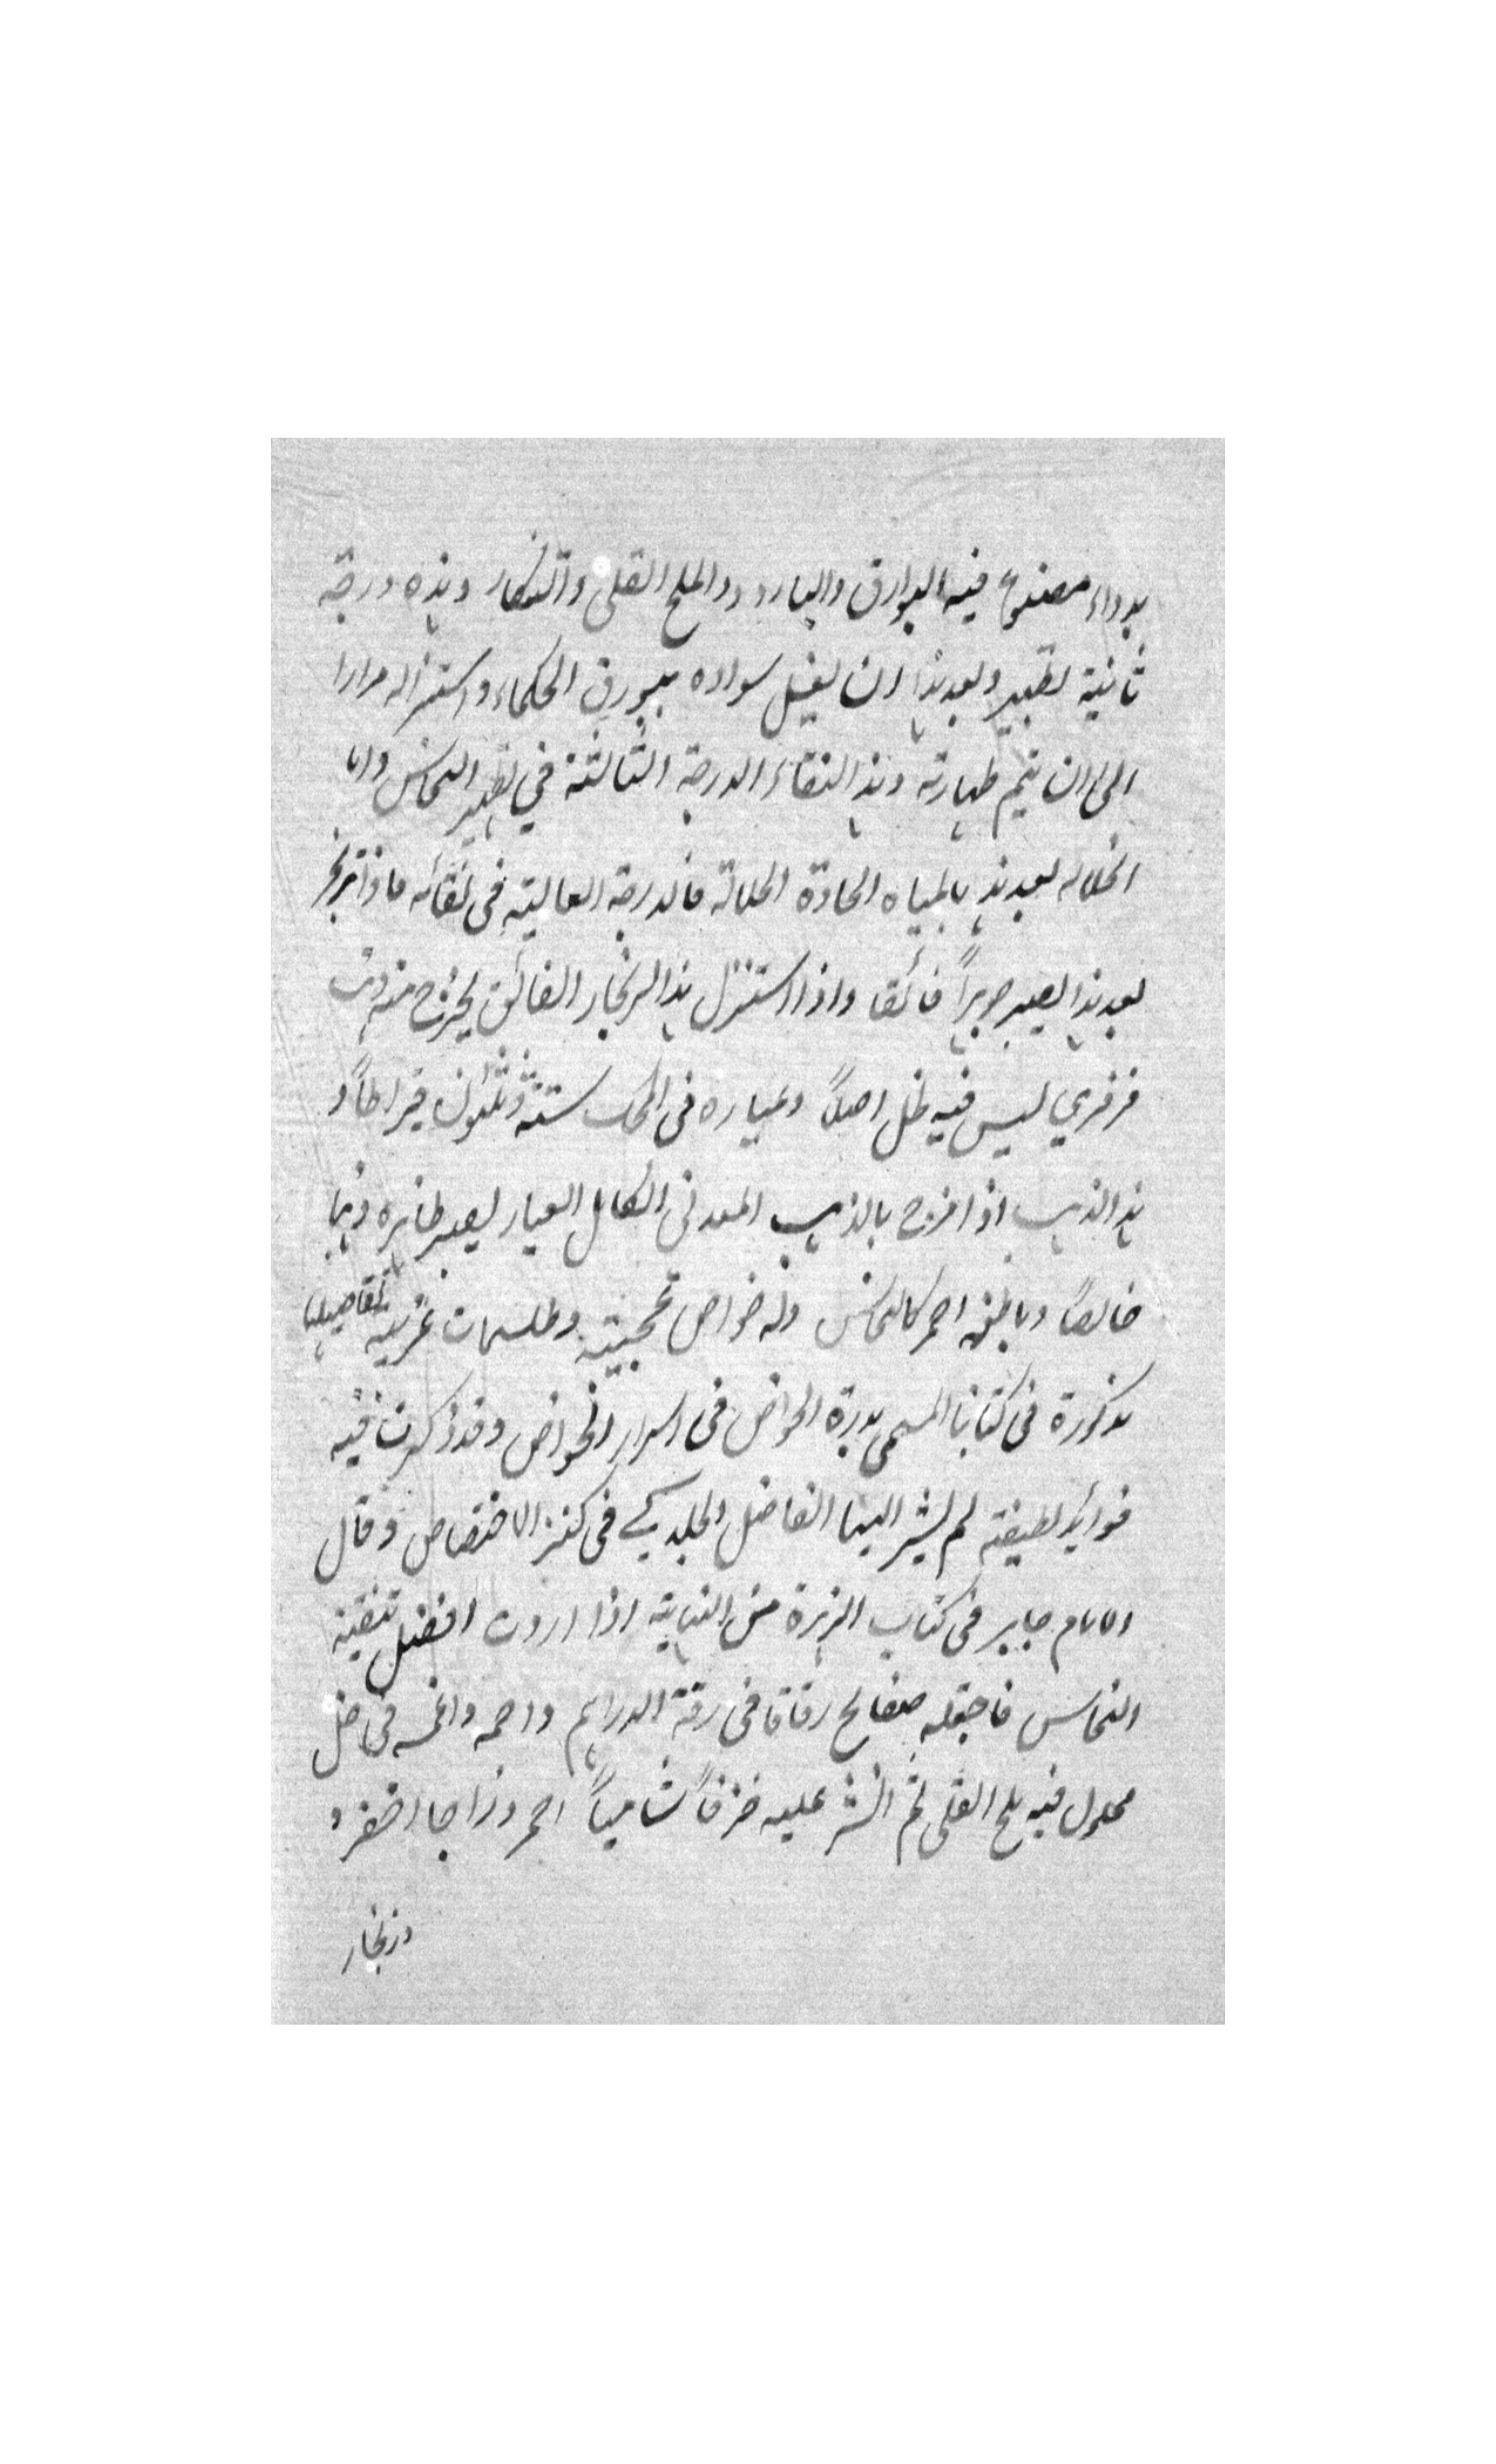 بدواء مصنوع فيه البوارق والبارود والملح القلي والتنكار وهذه درجة
ثانية لتطهير وبعد هذا ان يغسل سواده ببورق الحكماء واستنزاله مرارا
الى ان يتم طهارته وهذا النقاء الدرجة الثالثة في تطهير النحاس واما
انحلاله بعد هذا بالمياه الحادة الحلالة فالدرجة العالية في نقائه فاذا تزنجر
بعد هذا يصير جوهراً فائقا واذا استنزل هذا الزنجار الفائق يخرج منه ذهب
فرفري ليس فيه ظل اصلاً وعياره في المحك ستة وثلثون قيراطاً و
هذا الذهب اذا مزج بالذهب المعدني الكامل العيار يصير ظاهره ذهبا
خالصًا وباطنه احمر كالنحاس وله خواص عجيبة وطلسمات غريبة تفاصيلها
مذكورة في كتابنا المسمى بدرة الغواص في اسرار الخواص وقد ذكرت فيه
فوائد لطيفة لم يشير اليها الفاضل الجلدكي في كنز الاختصاص وقال
الامام جابر في كتاب الزهرة من النهاية اذا اردت افضل تنقية
النحاس فاجعله صفايح رقاقا في رقة الدراهم واحمه واغمسه في خل
محلول فيه ملح القلي ثم انشر عليه خزفاً شامياً احمر وزاجا اخضر و
وزنجار